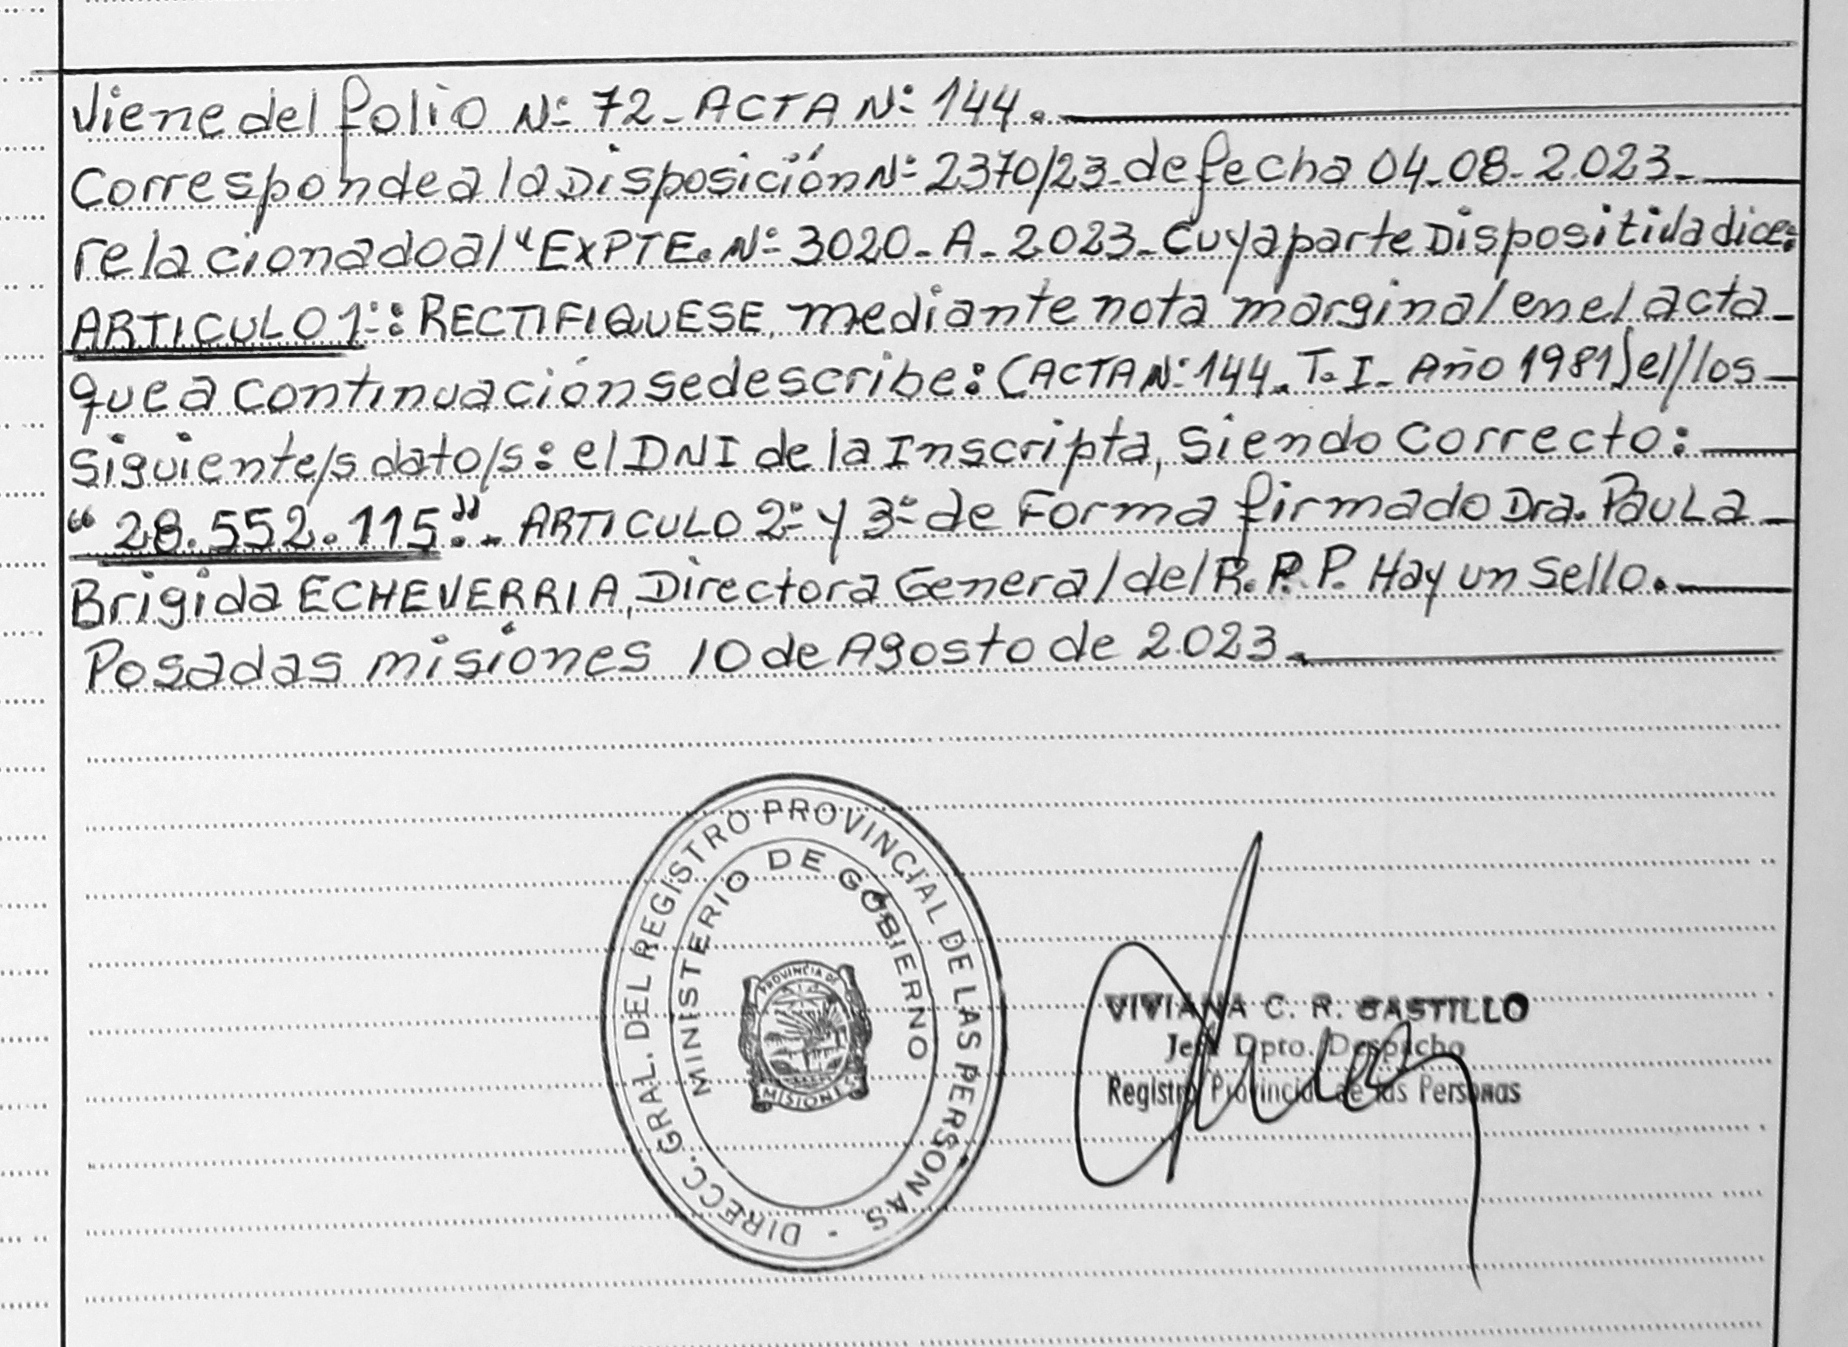 Viene del folio Nº 72_ ACTA Nº 144.
Corresponde a la Disposición Nº 2370/23_ de fecha 04_08_2023_
relacionado al "EXPTE. Nº 3020_A_2023_ Cuya parte Dispositiva dice:
ARTICULO 1º: RECTIFIQUESE, mediante nota marginal en el acta
que a continuación se describe: (ACTA Nº 144_ T. I_ Año 1981) el/los
siguiente/s dato/s: el DNI de la Inscripta, Siendo Correcto:
"28.552.115"._ ARTICULO 2º y 3º de Forma firmado Dra. Paula
Brigida ECHEVERRIA, Directora General del R.P.P. Hay un Sello.
Posadas misiones 10 de Agosto de 2023.
DIRECC. GRAL. DEL REGISTRO PROVINCIAL DE LAS PERSONAS -
MINISTERIO DE GOBIERNO
PROVINCIA DE
MISIONES
VIVIANA C. R. CASTILLO
Jefe Dpto. Despacho
Registro Provincial de las Personas